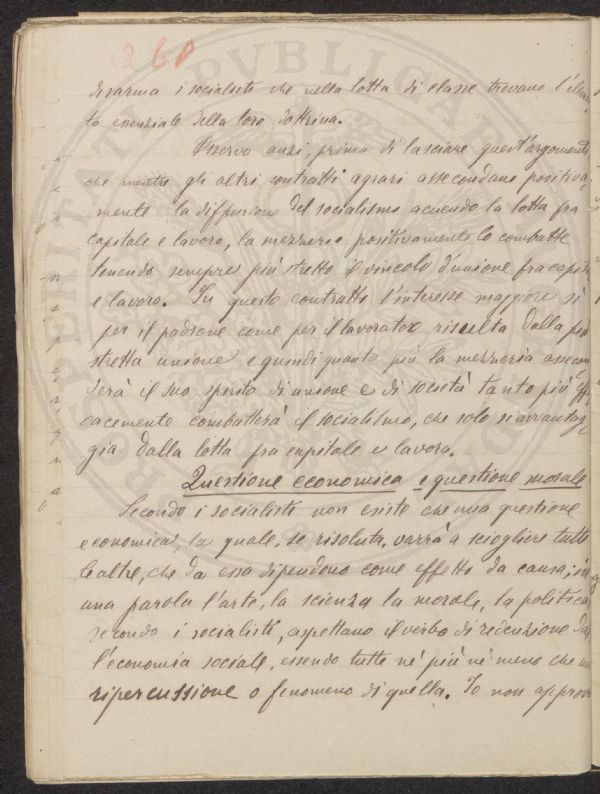 260
disarma i socialisti che nella lotta di classe trovano l'elemen
to essenziale della loro dottrina.
Osservo anzi, prima di lasciare quest'argomento
che mentre gli altri contratti agrari assecondano positiva
mente la diffusione del socialismo acuendo la lotta fra
capitale e lavoro, la mezzeria positivamente lo combatte
tenendo sempre più stretto il vincolo d'unione fra capitale
e lavoro. In questo contratto l'interesse maggiore sì
per il padrone come per il lavoratore risulta dalla più
stretta unione e quindi quanto più la mezzeria asseconderà
il suo spirito di unione e di società tanto più effi
cacemente combatterà il socialismo, che solo si avvantag
gia dalla lotta fra capitale e lavoro.
Questione economica e questione morale
Secondo i socialisti non esiste che una questione
economica, la quale, se risoluta, varrà a sciogliere tutte
le altre, che da essa dipendono come effetto da causa; in
una parola l'arte, la scienza la morale, la politica
secondo i socialisti, aspettano il verbo di redenzione dal
l'economia sociale, essendo tutte nè più nè meno che una
ripercussione o fenomeno di quella. Io non approvo